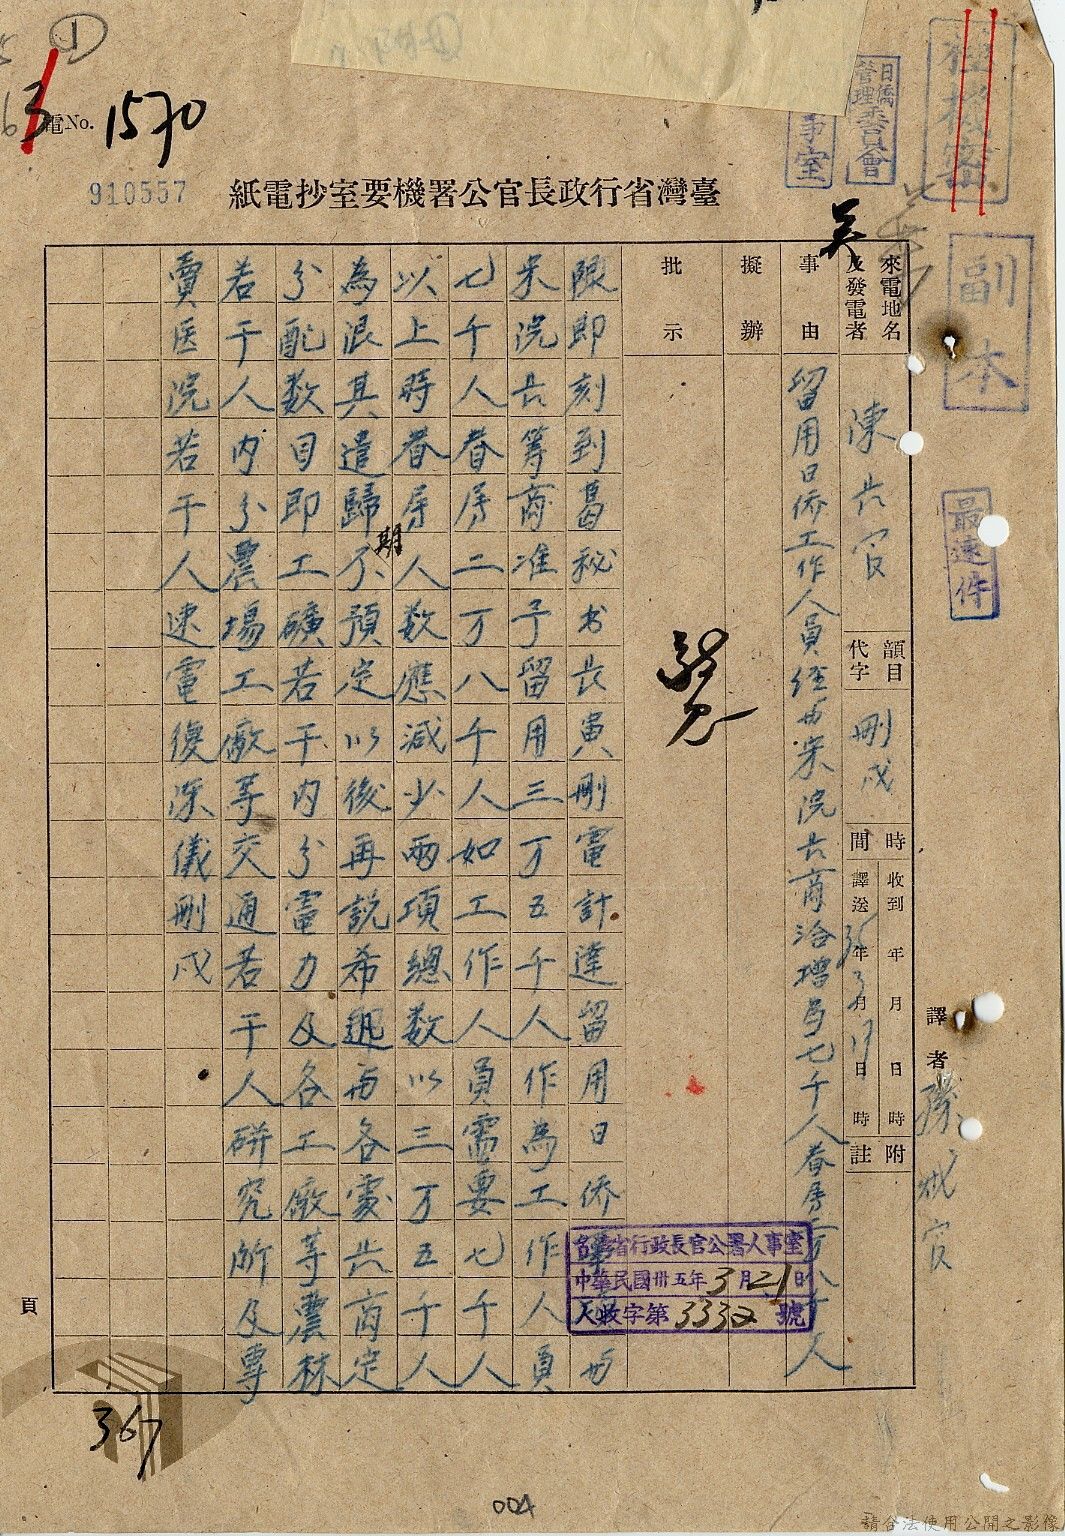 ①
電No. 1570
910557
臺灣省行政長官公署機要室抄電紙
極機密
日僑管理委員會
事室
副本
最速件
來電地名及發電者 陳長官
韻目代字 刪戌
時間
收到 年 月 日 時
譯送 35年3月17日 時
附註
譯者
事由 留用日僑工作人員經與宋院長商洽增為七千人眷屬二万八千人
擬辦
批示
限即刻到葛秘书長寅刪電計達留用日僑 與
宋院長等商准予留用三万五千人作為工作人員
七千人眷屬二万八千人如工作人員需要七千人
以上時眷屬人数應減少兩項總数以三万五千人
為限其遣歸期不預定以後再説希迅與各處長商定
分配数目即工礦若干内分電力及各工廠等農林
若干人内分農場工廠等交通若干人研究所及專
賣医院若干人速電復陳儀刪戌
台灣省行政長官公署人事室
中華民國卅五年3月21日
人收字第3332號
頁
367
004
請合法使用公開之影像